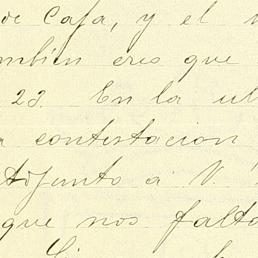 de Casa, y el
mbien creo que
23. En la ul
contestacion
Adjunto a V.
que nos falta